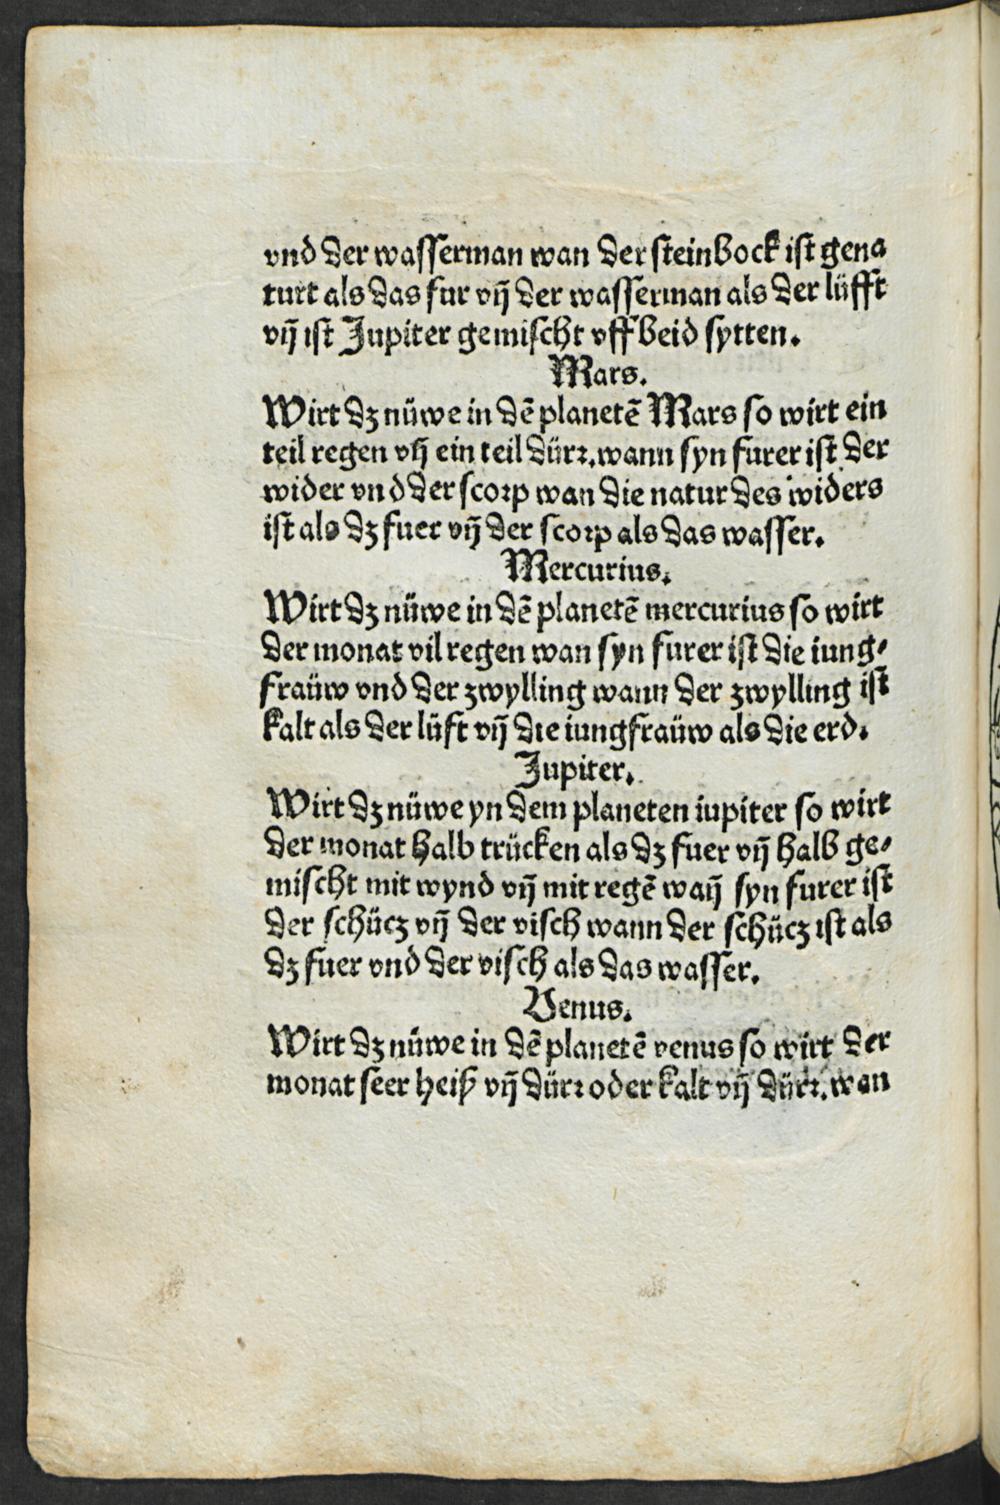 vnd der wasserman wan der steinbock ist gena
turt als das fur vn̄ der wasserman als der lüfft
vn̄ ist Jupiter gemischt vff beid sytten.
Mars.
Wirt dz nüwe in dē planetē Mars so wirt ein
teil regen vn̄ ein teil dürr. wann syn furer ist der
wider vnd der scorp wan die natur des widers
ist als dz fuer vn̄ der scorp als das wasser.
Mercurius.
Wirt dz nüwe in dē planetē mercurius so wirt
der monat vil regen wan syn furer ist die iung⸗
fraüw vnd der zwylling wann der zwylling ist
kalt als der lüft vn̄ die iungfraüw als die erd.
Jupiter.
Wirt dz nüwe yn dem planeten iupiter so wirt
der monat halb trücken als dz fuer vn̄ halb ge⸗
mischt mit wynd vn̄ mit regē wan̄ syn furer ist
der schücz vn̄ der visch wann der schücz ist als
dz fuer vnd der visch als das wasser.
Venus.
Wirt dz nüwe in dē planetē venus so wirt der
monat seer heiß vn̄ dürr oder kalt vn̄ dürr. wan